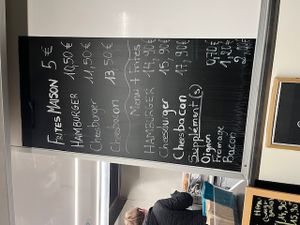 FRITES MAISON 5 €
HAMBURGER 10,50 €
Cheeseburger 11,50 €
Cheesbacon 13,50 €
Menu + frites
HAMBURGER 14,90 €
Cheeseburger 15,90 €
Cheesbacon 17,90 €
Supplément(s)
Oignon 0,70 €
Fromage 1,20 €
Bacon